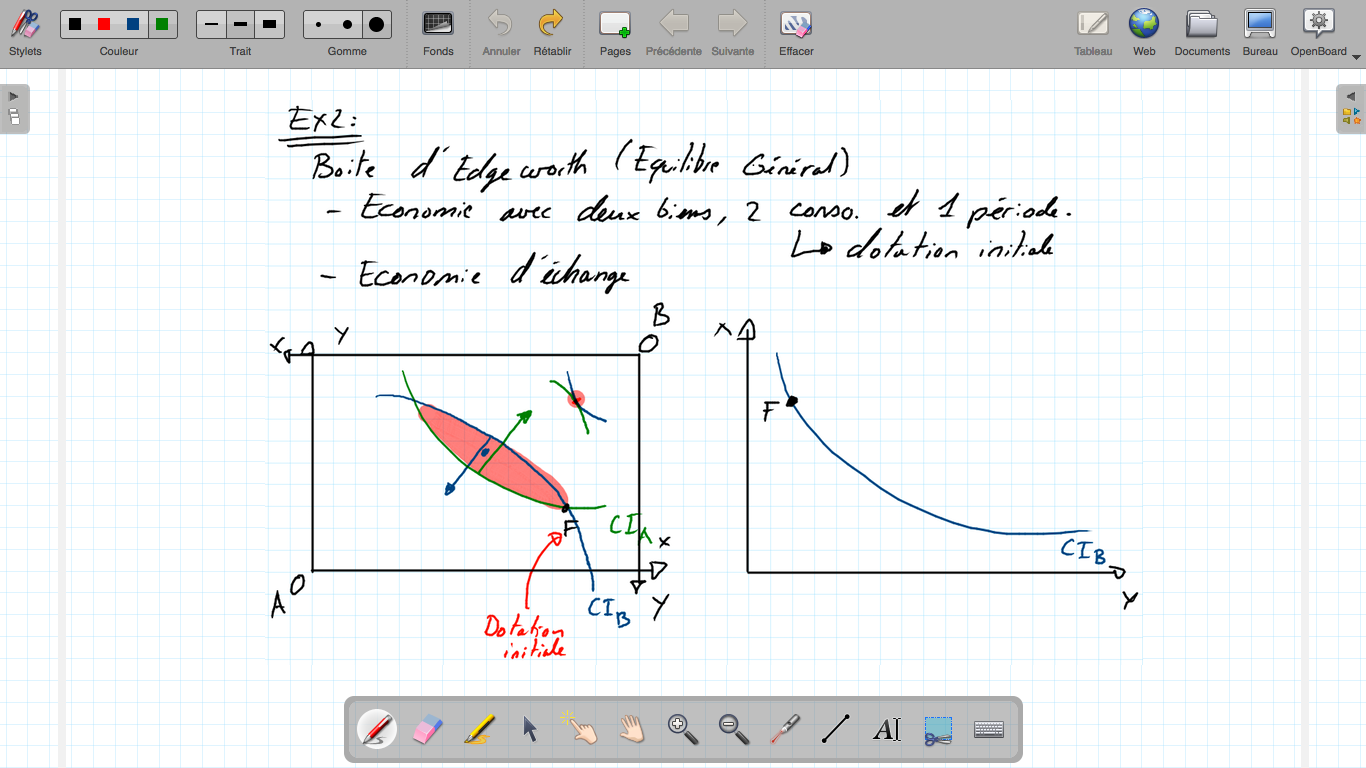 Stylets
Couleur
Trait
Gomme
Fonds
Annuler
Rétablir
Pages
Précédente
Suivante
Effacer
Tableau
Web
Documents
Bureau
OpenBoard
Ex2:
Boite d'Edgeworth (Equilibre Général)
- Economie avec deux biens, 2 conso. et 1 période.
↳ dotation initiale
- Economie d'échange
B
X
Y
O
X
F
CI_A
F
X
CI_B
O
A
CI_B
Y
Y
Dotation
initiale
A